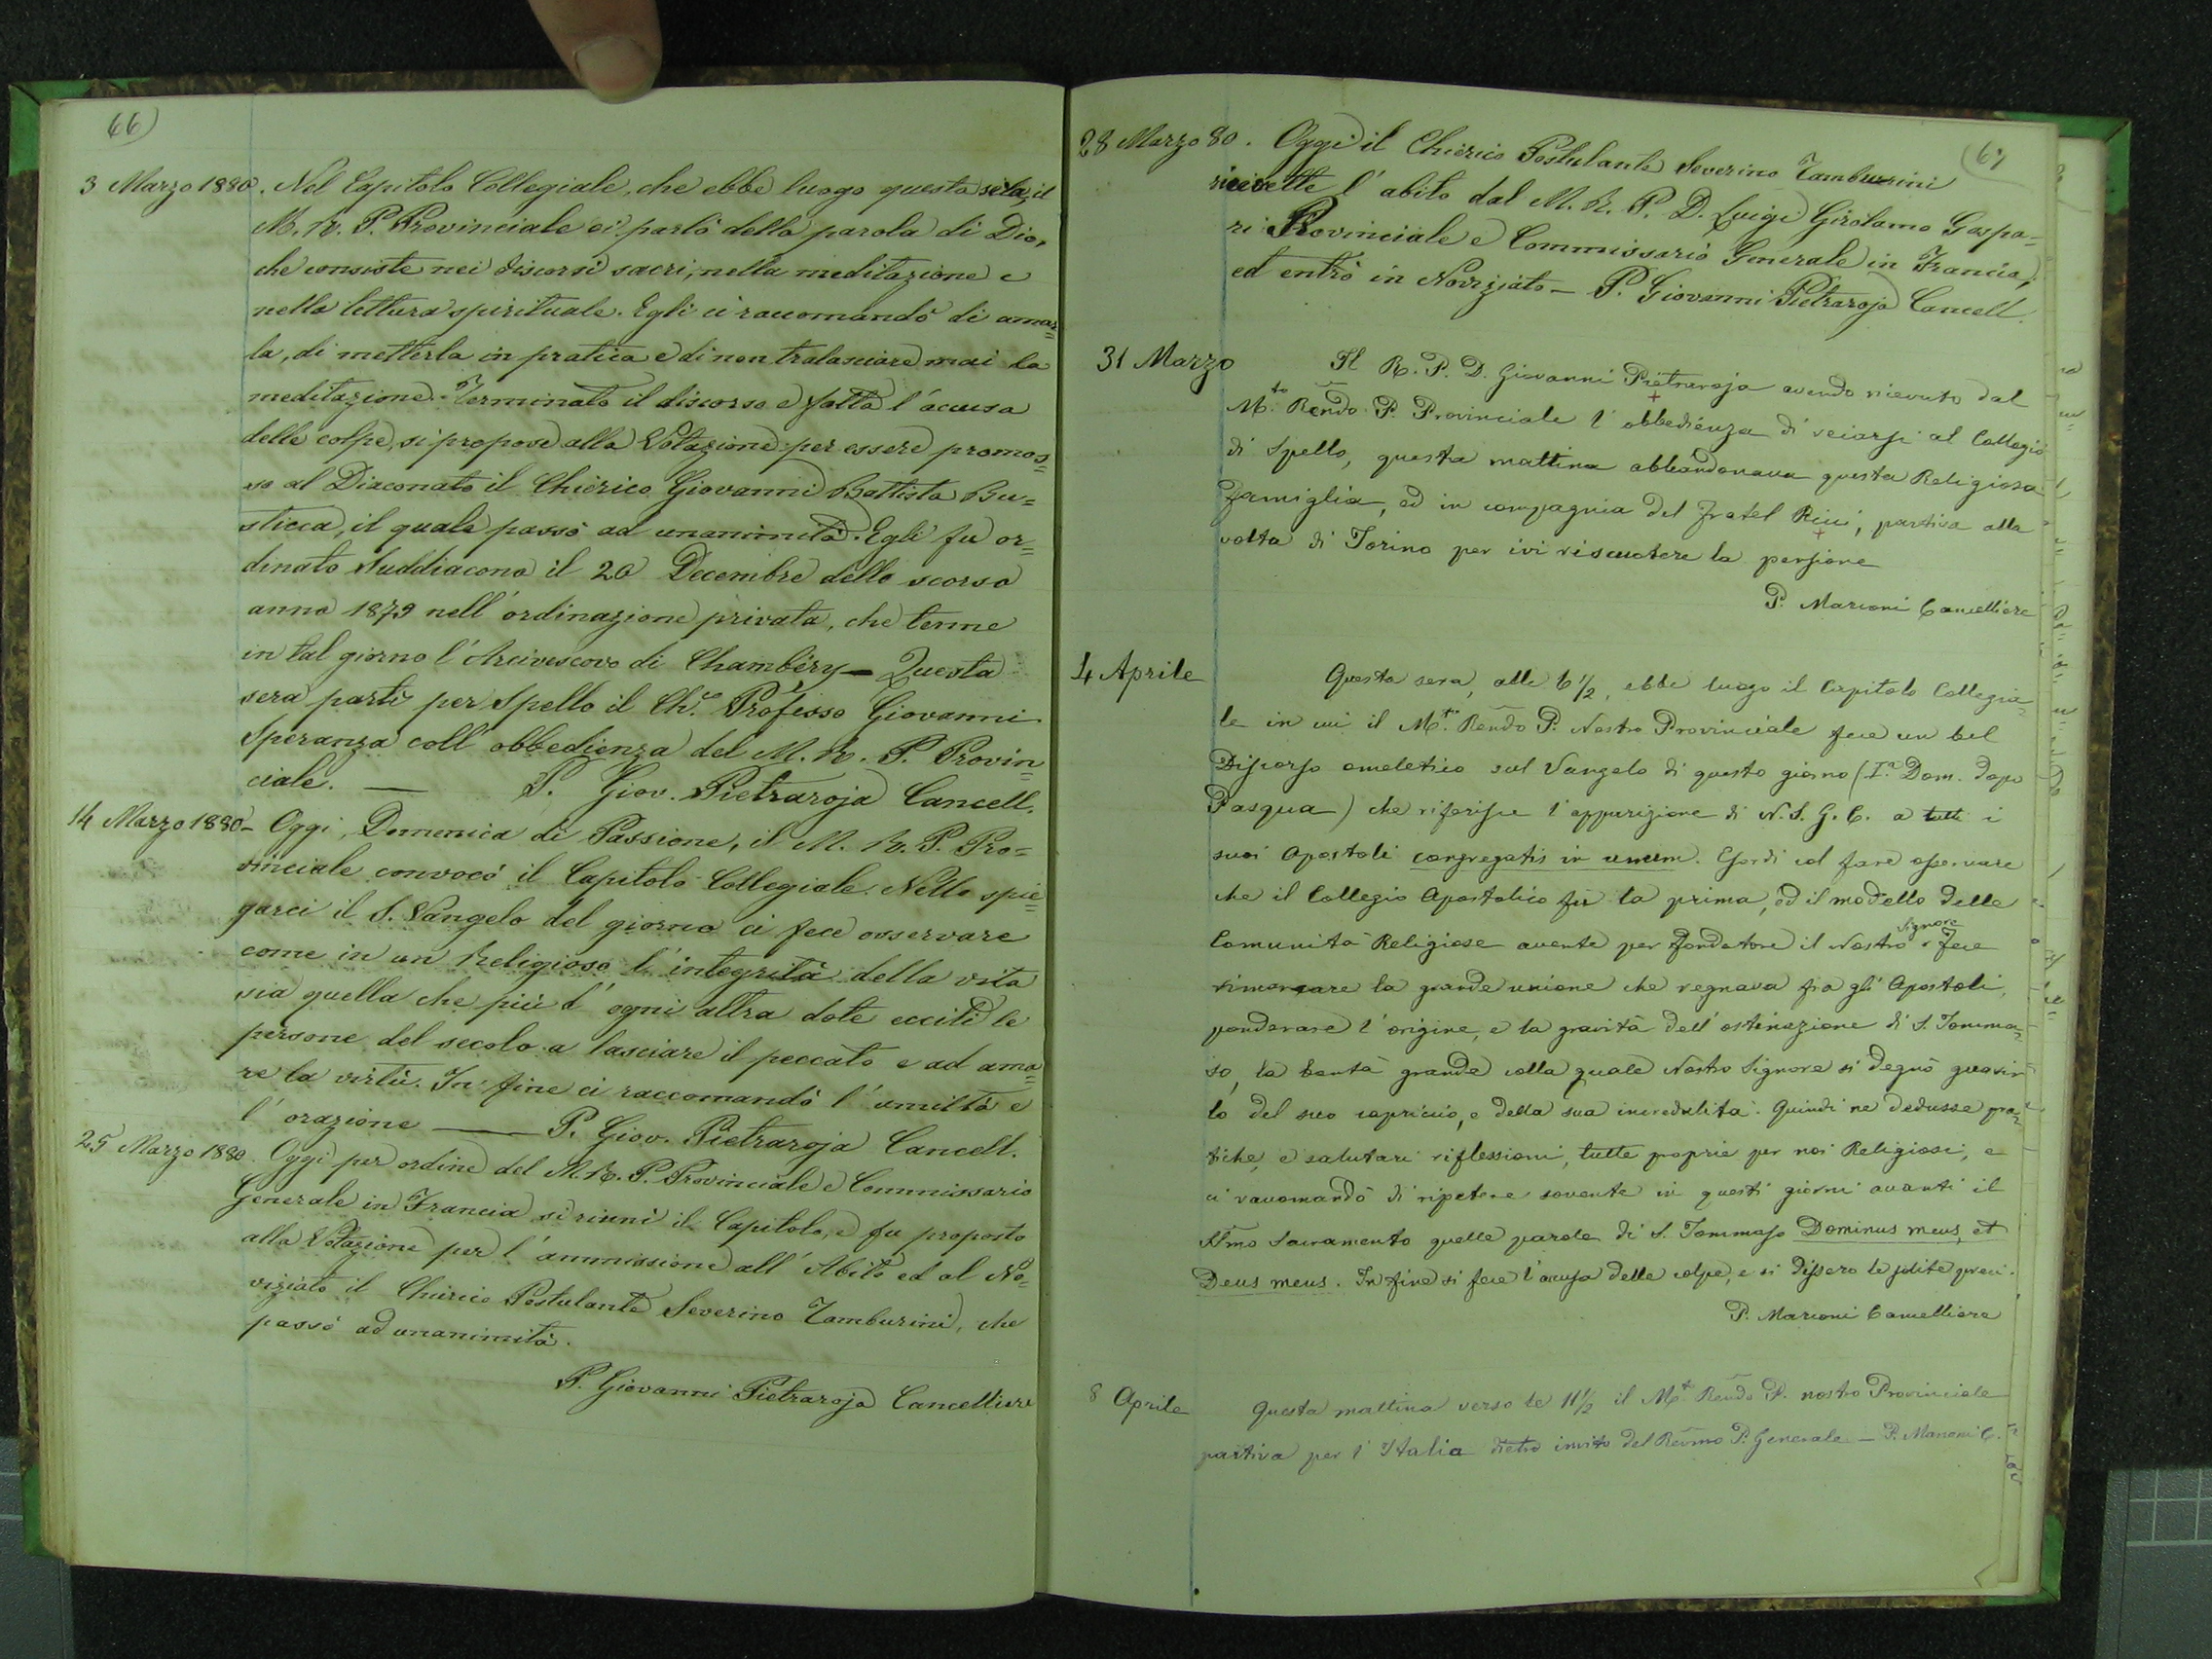 66)
3 Marzo 1880. Nel Capitolo Collegiale, che ebbe luogo questa sera, il
M. R. P. Provinciale ci parlò della parola di Dio,
che consiste nei discorsi sacri, nella meditazione e
nella lettura spirituale. Egli ci raccomandò di amar=
la, di metterla in pratica e di non tralasciare mai la
meditazione. Terminato il discorso e fatta l'accusa
delle colpe, si propose alla Votazione per essere promos=
so al Diaconato il Chierico Giovanni Battista Bu=
sticca, il quale passò ad unanimità. Egli fu or=
dinato Suddiacono il 20 Decembre dello scorso
anno 1879 nell'ordinazione privata, che tenne
in tal giorno l'Arcivescovo di Chambéry — Questa
sera partì per Spello il Ch.º Professo Giovanni
Speranza coll'obbedienza del M. R. P. Provin=
ciale. — P. Giov. Pietraroja Cancell.
14 Marzo 1880 - Oggi, Domenica di Passione, il M. R. P. Pro=
vinciale convocò il Capitolo Collegiale. Nello spie=
garci il S. Vangelo del giorno ci fece osservare
come in un Religioso l'integrità della vita
sia quella che più d'ogni altra dote ecciti le
persone del secolo a lasciare il peccato e ad ama=
re la virtù. In fine ci raccomandò l'umiltà e
l'orazione — P. Giov. Pietraroja Cancell.
25 Marzo 1880. Oggi per ordine del M. R. P. Provinciale e Commissario
Generale in Francia si riunì il Capitolo, e fu proposto
alla Votazione per l'ammissione all'Abito ed al No=
viziato il Chierico Postulante Severino Tamburini, che
passò ad unanimità.
P. Giovanni Pietraroja Cancelliere
(67
28 Marzo 80. Oggi il Chierico Postulante Severino Tamburini
ricevette l'abito dal M. R. P. D. Luigi Girolamo Gaspa=
ri Provinciale e Commissario Generale in Francia,
ed entrò in Noviziato — P. Giovanni Pietraroja Cancell.
31 Marzo Il R. P. D. Giovanni Pietraroja avendo ricevuto dal
M.to Rendo P. Provinciale l'obbedienza di reciarsi al Collegio
di Spello, questa mattina abbandonava questa Religiosa
famiglia, ed in compagnia del fratel Ricci, partiva alla
volta di Torino per ivi riscuotere la pensione
P. Marconi Cancelliere
4 Aprile Questa sera, alle 6 1/2, ebbe luogo il Capitolo Collegia=
le in cui il M.to Rendo P. Nostro Provinciale fece un bel
Discorso omeletico sul Vangelo di questo giorno (I.a Dom. dopo
Pasqua) che riferisce l'apparizione di N. S. G. C. a tutti i
suoi Apostoli congregatis in unum. Esordì col fare osservare
che il Collegio Apostolico fù la prima, ed il modello delle
Comunità Religiose avente per fondatore il Nostro Signore fece
rimarcare la grande unione che regnava fra gli Apostoli,
ponderare l'origine, e la gravità dell'ostinazione di S. Tomma=
so, la bontà grande colla quale Nostro Signore si degnò guarir
lo del suo capriccio, e della sua incredulità. Quindi ne dedusse pra=
tiche, e salutari riflessioni, tutte proprie per noi Religiosi, e
ci raccomandò di ripetere sovente in questi giorni avanti il
SSmo Sacramento quelle parole di S. Tommaso Dominus meus, et
Deus meus. In fine si fece l'accusa delle colpe, e si dissero le solite preci.
P. Marconi Cancelliere
8 Aprile Questa mattina verso le 11 1/2 il M.to Rendo P. nostro Provinciale
partiva per l'Italia dietro invito del Revmo P. Generale — P. Marconi C.